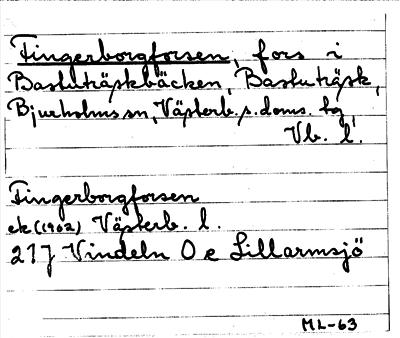 Fingerborgforsen, fors i
Bastuträskbäcken, Bastuträsk,
Bjurholms sn, Västerb. s. doms. tg,
Vb. l.
Fingerborgforsen
ek (1962) Västerb. l.
21 J Vindeln O e Lillarmsjö
ML-63